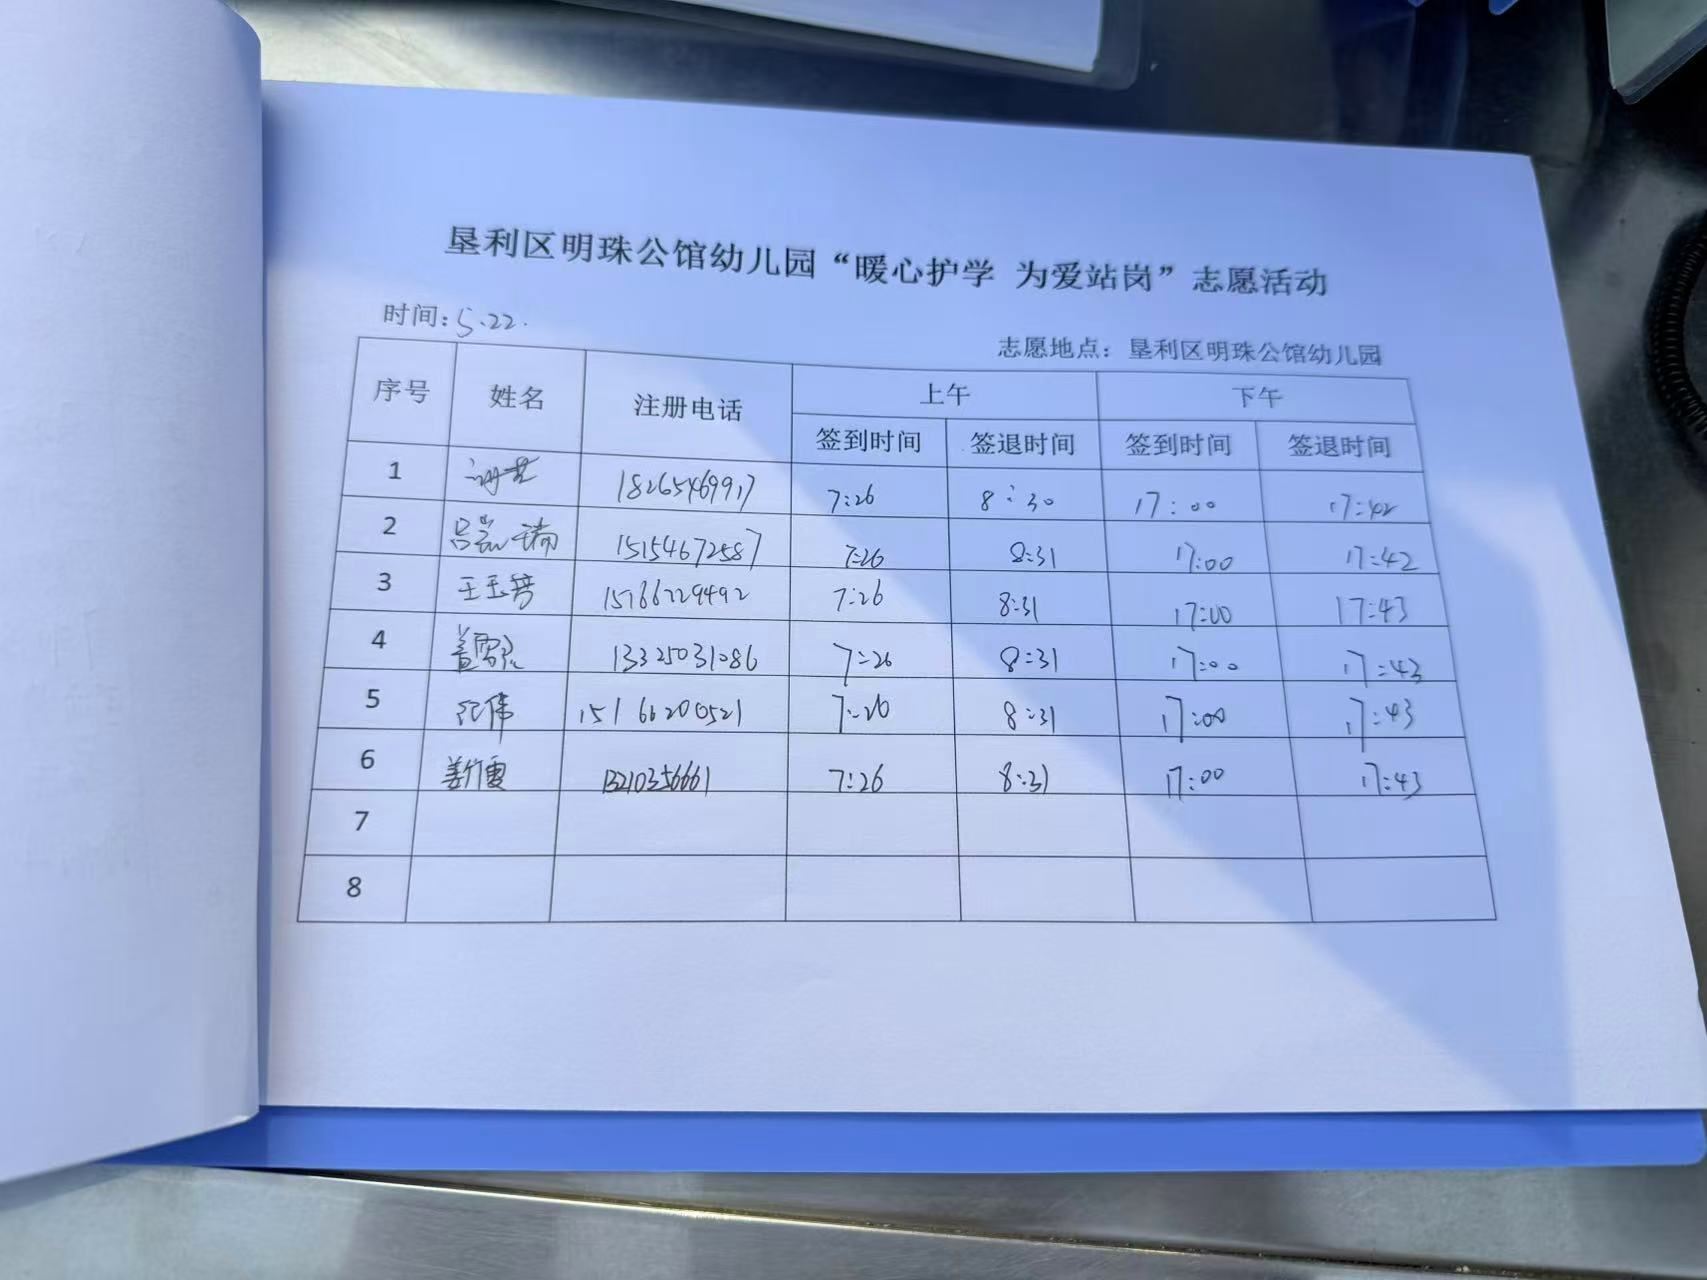 垦利区明珠公馆幼儿园“暖心护学 为爱站岗”志愿活动
时间:5.22.
志愿地点：垦利区明珠公馆幼儿园
序号 姓名 注册电话 上午 下午
签到时间 签退时间 签到时间 签退时间
1 18265469917 7:26 8:30 17:00 17:42
2 吕岚瑞 15154672587 7:26 8:31 17:00 17:42
3 王玉芳 15766229492 7:26 8:31 17:00 17:43
4 13325031086 7:26 8:31 17:00 17:43
5 纪伟 15166200521 7:26 8:31 17:00 17:43
6 13210356661 7:26 8:31 17:00 17:43
7
8